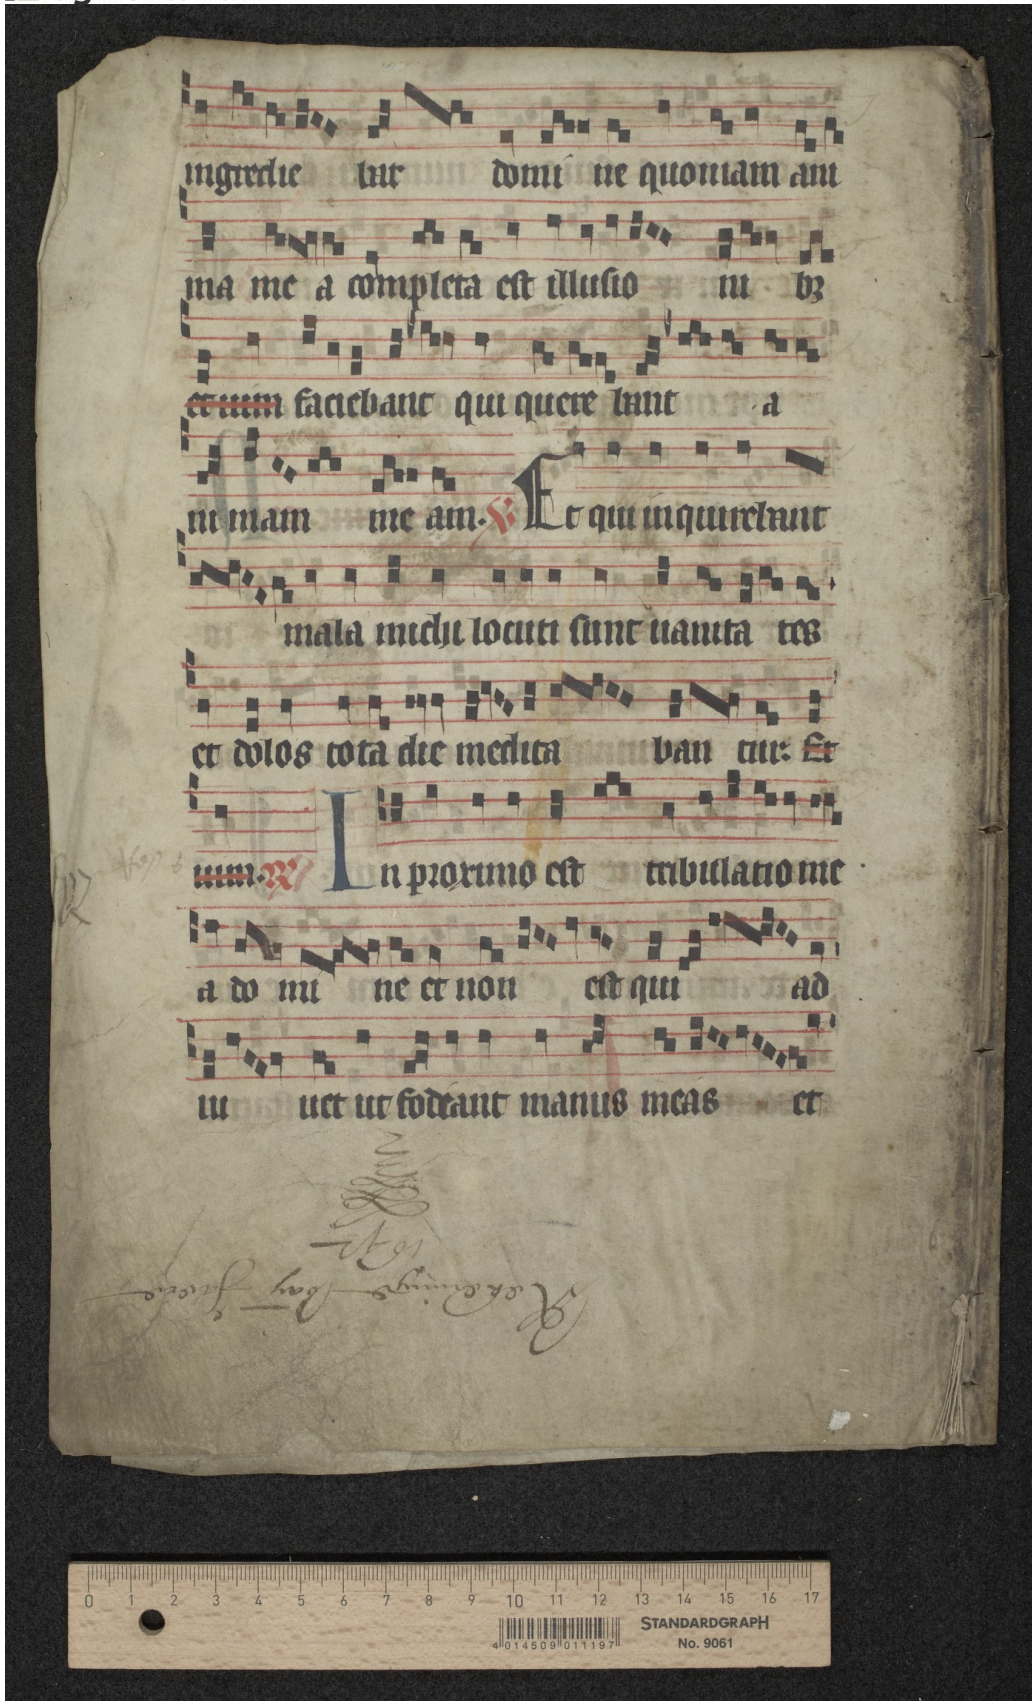 ingredie bar domi ne quoniam ani
ma me a completa est illusio ni bꝫ
et uim faciebant qui quere bant a
ni mam me am. V Et qui inquirebant
mala michi locuti sunt uanita tes
et dolos tota die medita ban tur: Et
uim. R In proximo est tribulatio me
a do mi ne et non est qui ad
iu uet ut fodeant manus meas et
0 1 2 3 4 5 6 7 8 9 10 11 12 13 14 15 16 17
4 014509 011197
STANDARDGRAPH
No. 9061